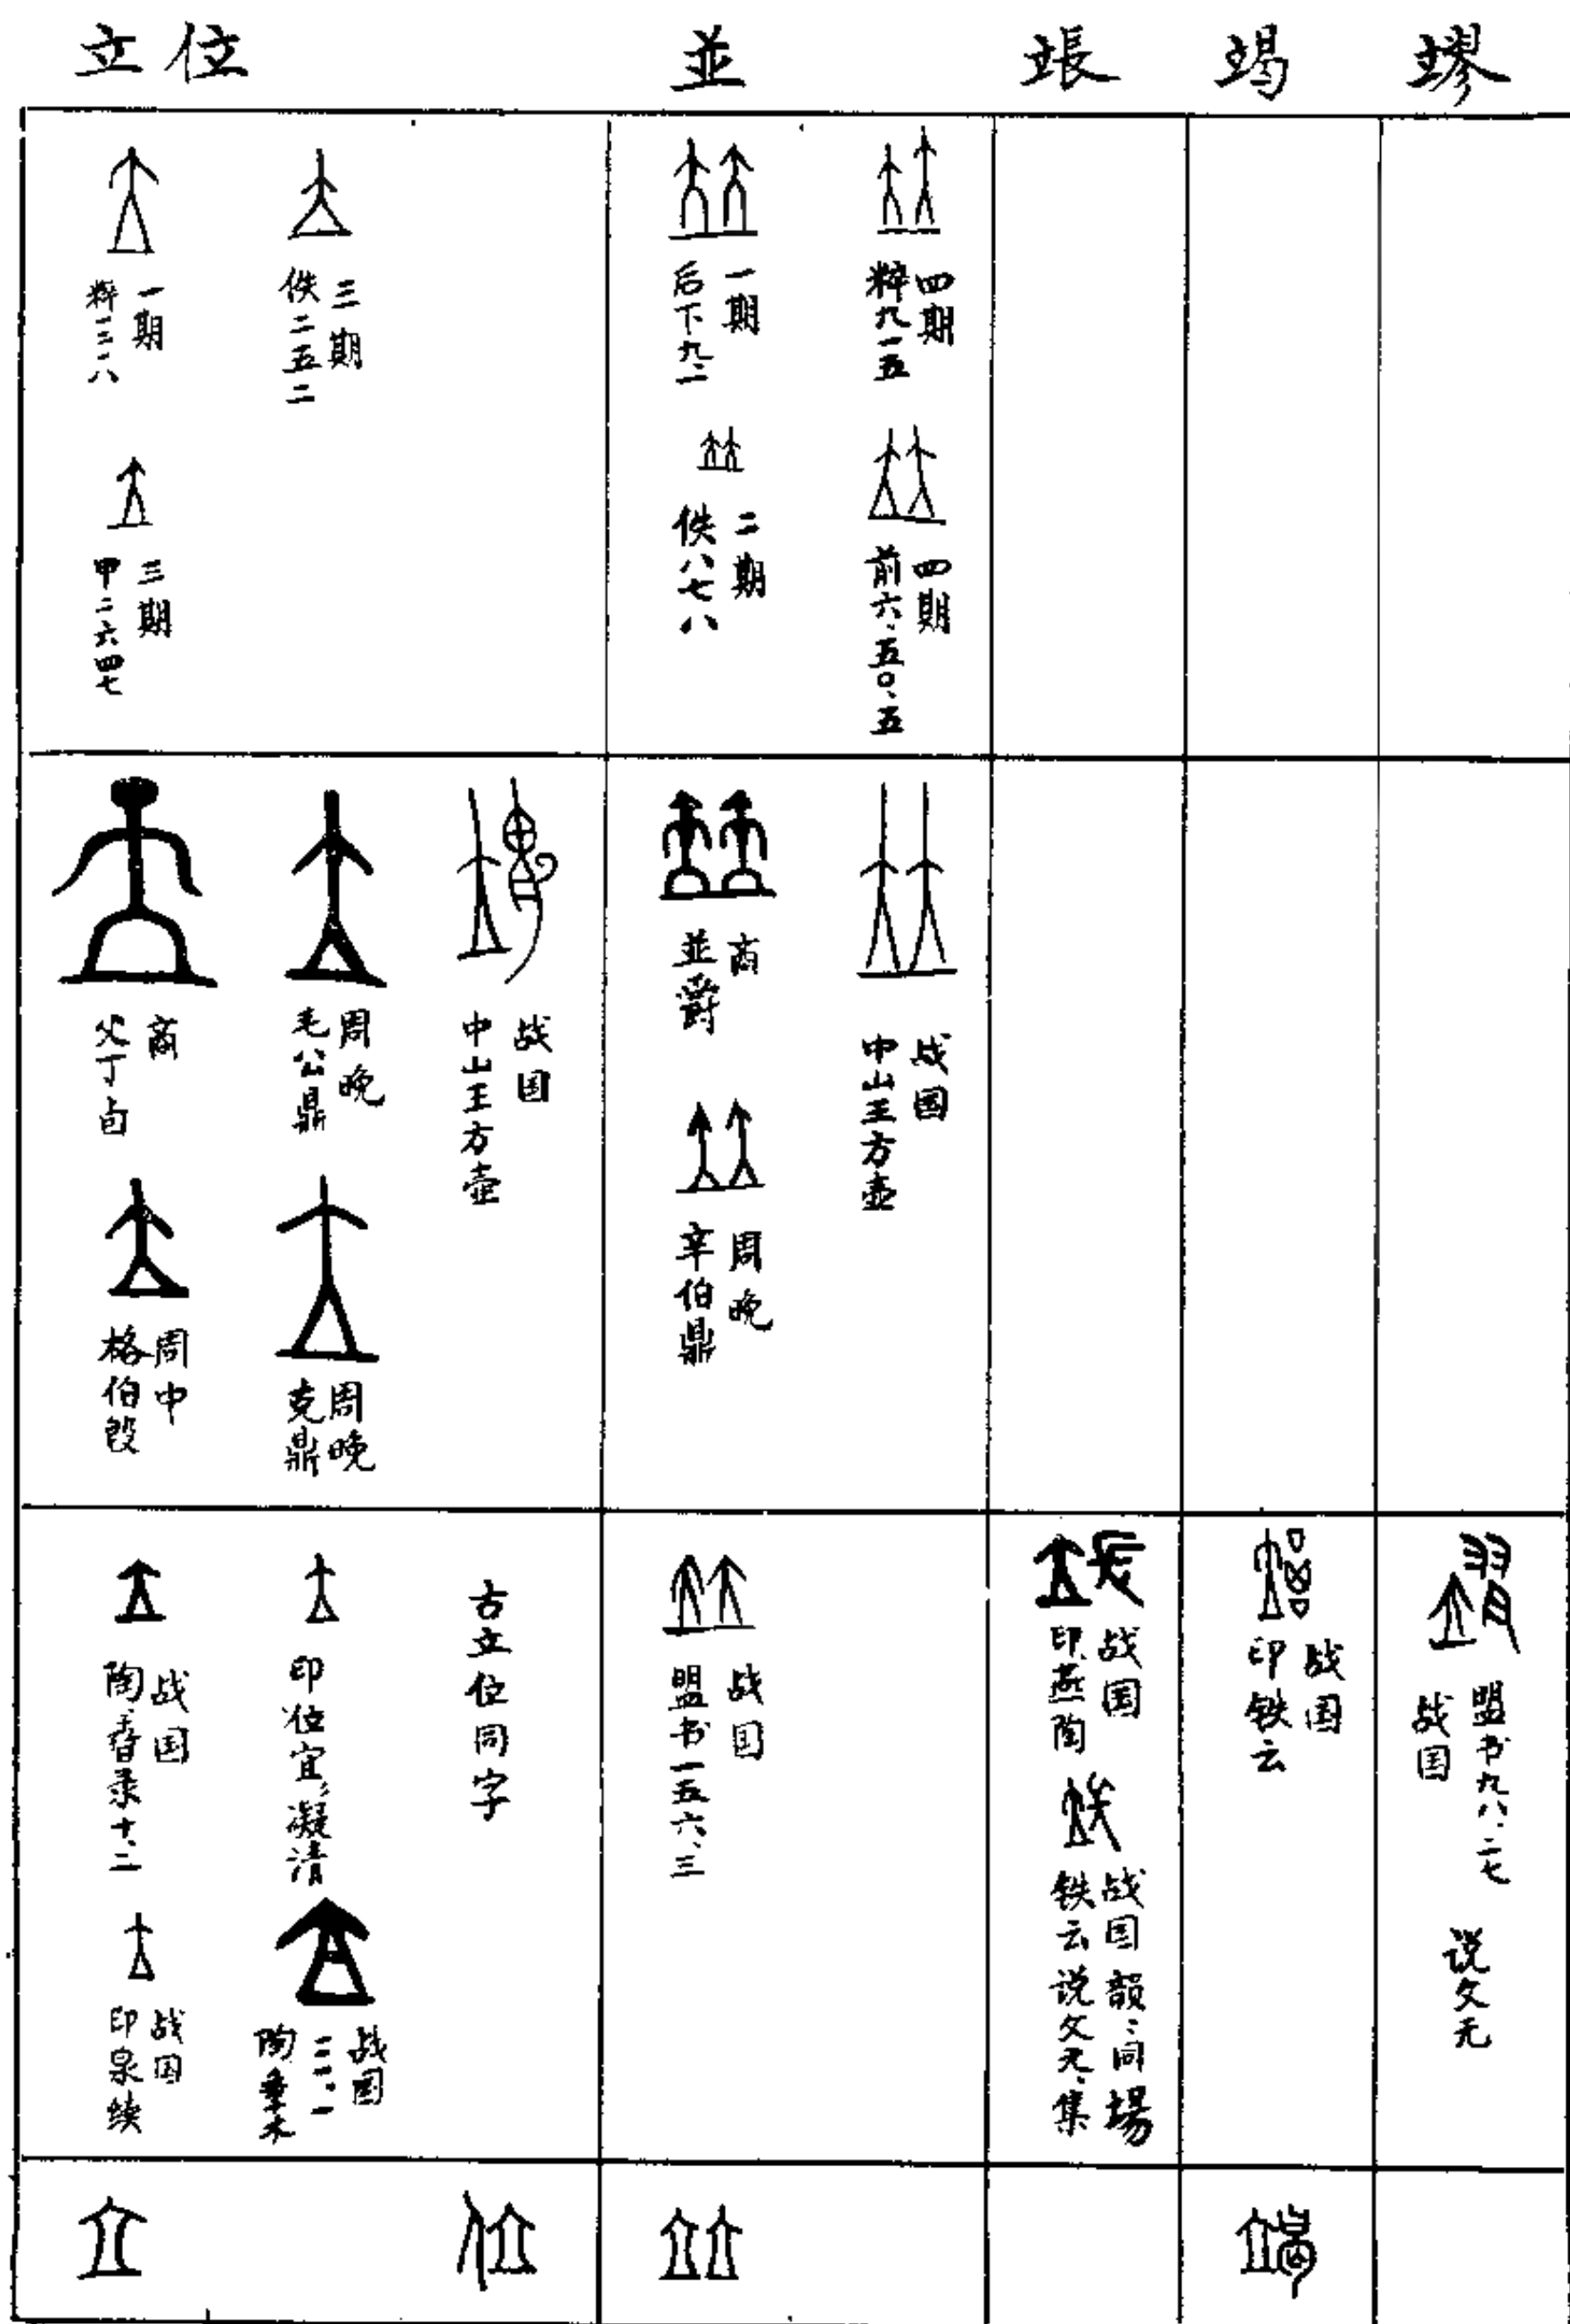 立 位 並 䛫 竭 㻿
一期
粹二三八
三期
佚二五二
三期
甲二六四七
一期
后下九·一
四期
粹九一五
二期
佚八七八
四期
前六·五〇·五
商
父丁卣
周晚
毛公鼎
战国
中山王方壶
周中
格伯𣪘
周晚
克鼎
商
並爵
战国
中山王方壶
周晚
辛伯鼎
战国
陶香录十·二
印位宜、凝清
古立位同字
战国
印泉续
战国
陶
战国
盟书一五六·三
战国
印燕陶
战国韻:同場
铁云说文无、集
战国
印铁云
盟书九八·二七
战国
说文无